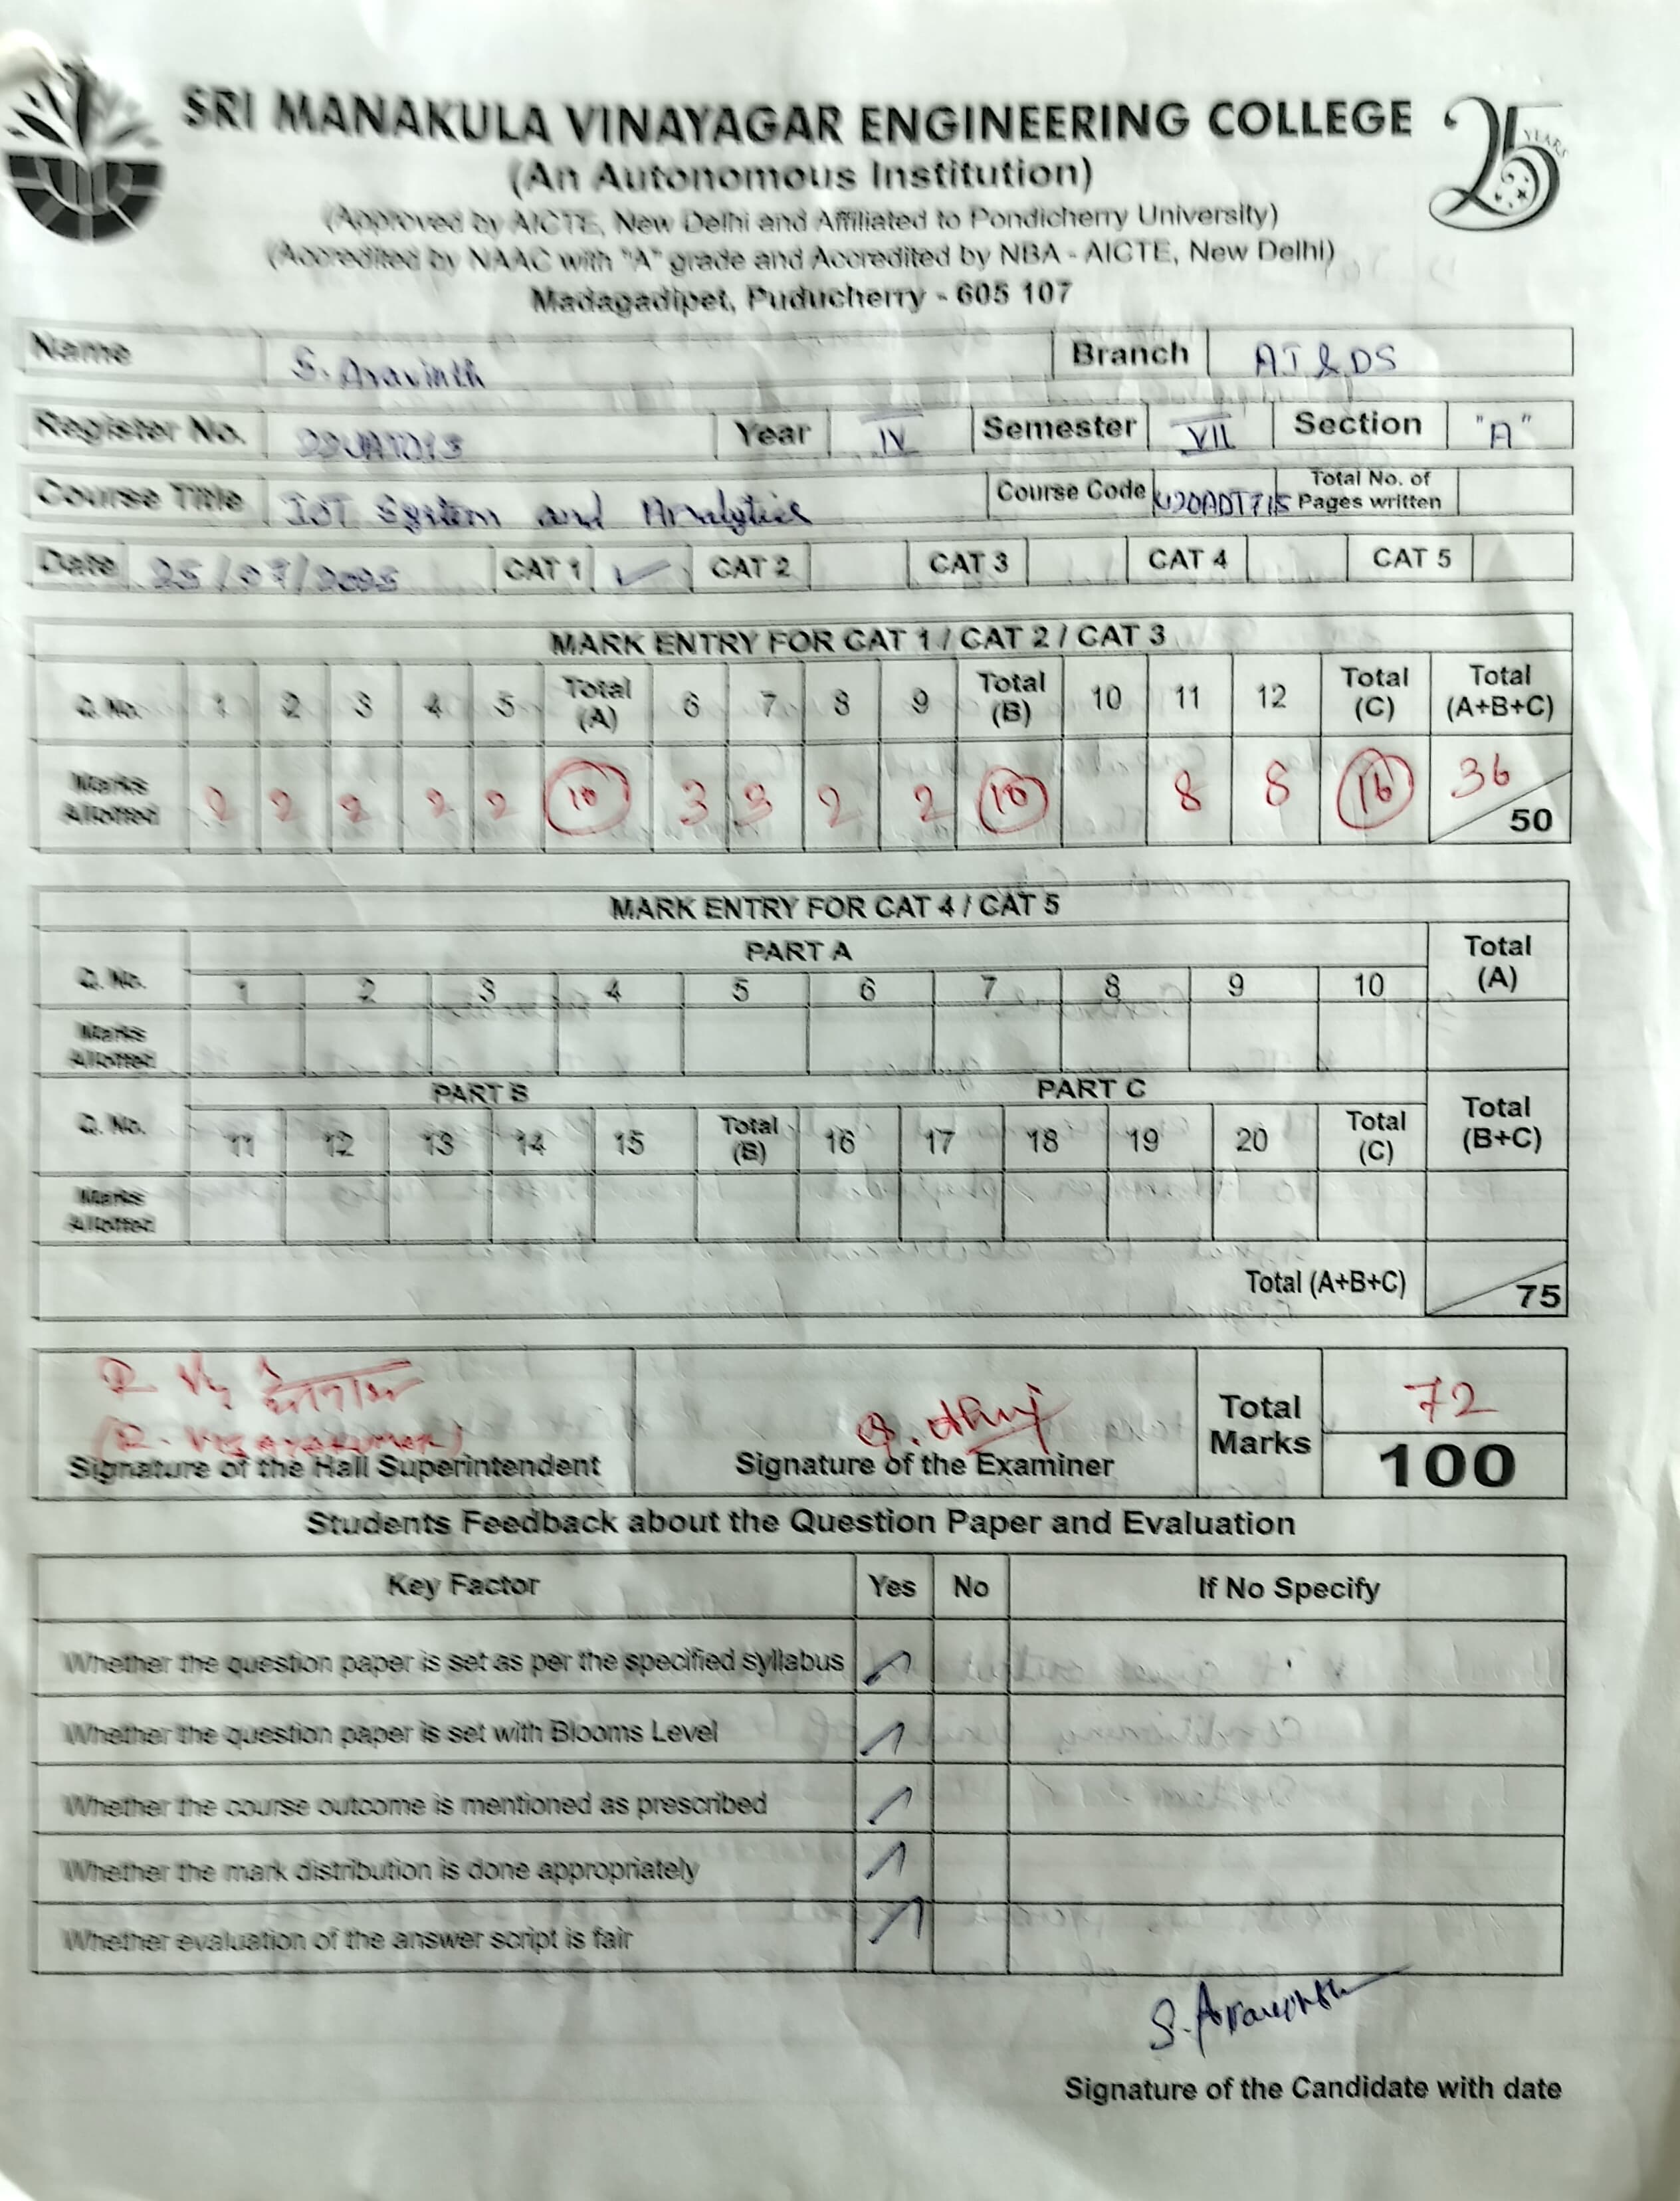 SRI MANAKULA VINAYAGAR ENGINEERING COLLEGE
25 YEARS
(An Autonomous Institution)
(Approved by AICTE, New Delhi and Affiliated to Pondicherry University)
(Accredited by NAAC with "A" grade and Accredited by NBA - AICTE, New Delhi)
Madagadipet, Puducherry - 605 107
Name S. Aravinth Branch AI & DS
Register No. Year IV Semester VII Section "A"
Course Title IOT System and Analytics Course Code U20ADT715 Total No. of Pages written
Date 25/07/2025 CAT 1 ✓ CAT 2 CAT 3 CAT 4 CAT 5
MARK ENTRY FOR CAT 1 / CAT 2 / CAT 3
Q. No. 1 2 3 4 5 Total (A) 6 7 8 9 Total (B) 10 11 12 Total (C) Total (A+B+C)
Marks Allotted 2 2 2 2 2 10 3 3 2 2 10 8 8 16 36 / 50
MARK ENTRY FOR CAT 4 / CAT 5
PART A Total (A)
Q. No. 1 2 3 4 5 6 7 8 9 10
Marks Allotted
PART B PART C
Q. No. 11 12 13 14 15 Total (B) 16 17 18 19 20 Total (C) Total (B+C)
Marks Allotted
Total (A+B+C) 75
Signature of the Hall Superintendent Signature of the Examiner Total Marks 72 / 100
Students Feedback about the Question Paper and Evaluation
Key Factor Yes No If No Specify
Whether the question paper is set as per the specified syllabus ✓
Whether the question paper is set with Blooms Level ✓
Whether the course outcome is mentioned as prescribed ✓
Whether the mark distribution is done appropriately ✓
Whether evaluation of the answer script is fair ✓
S. Aravinth
Signature of the Candidate with date